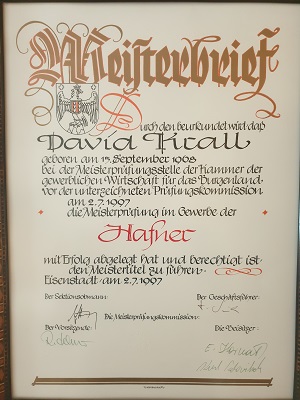 Meisterbrief
Durch den beurkundet wird daß
David Krall
geboren am 15. September 1968
bei der Meisterprüfungsstelle der Kammer der
gewerblichen Wirtschaft für das Burgenland
vor der unterzeichneten Prüfungskommission
am 2.7.1997
die Meisterprüfung im Gewerbe der
Hafner
mit Erfolg abgelegt hat und berechtigt ist
den Meistertitel zu führen.
Eisenstadt am 2.7.1997
Der Sektionsobmann: Der Geschäftsführer:
Die Meisterprüfungskommission:
Der Vorsitzende: Die Beisitzer: